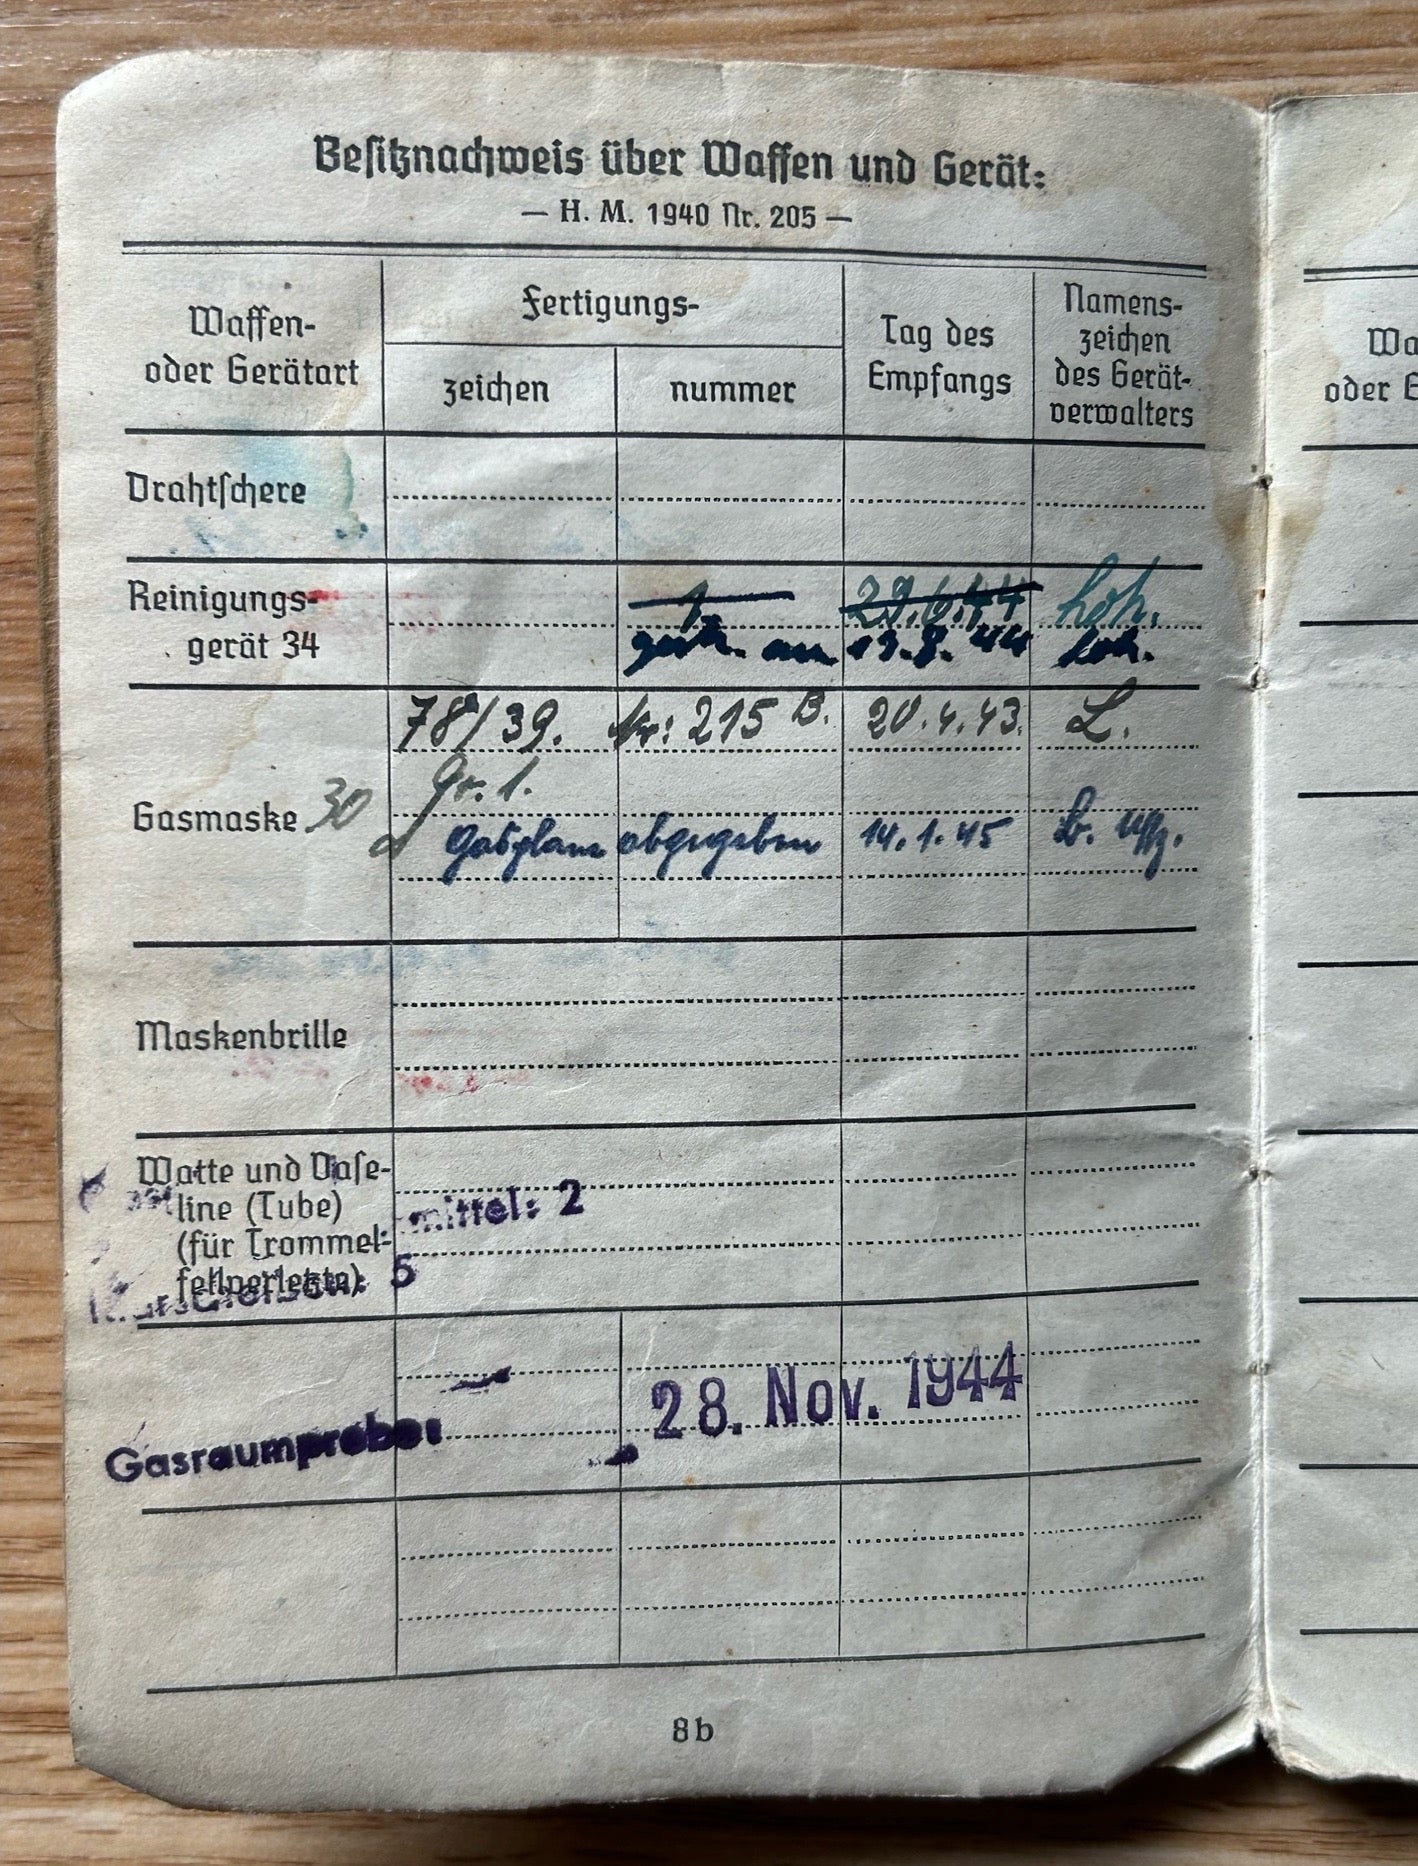 Besitznachweis über Waffen und Gerät:
— H. M. 1940 Nr. 205 —
Waffen-
oder Gerätart
Fertigungs-
zeichen
nummer
Tag des
Empfangs
Namens-
zeichen
des Gerät-
verwalters
Drahtschere
Reinigungs-
gerät 34
1 29.6.44 Loh.
gestr. am 19.8.44 Loh.
78/39. Nr: 215 B. 20.4.43. L.
Gr. 1.
Gasmaske 30
Gasplane abgegeben 14.1.45 Uffz.
Maskenbrille
Watte und Vase-
line (Tube)
(für Trommel-
fellverletzte)
mittel: 2
5
28. Nov. 1944
Gasraumprobe:
8b
Wa
oder G